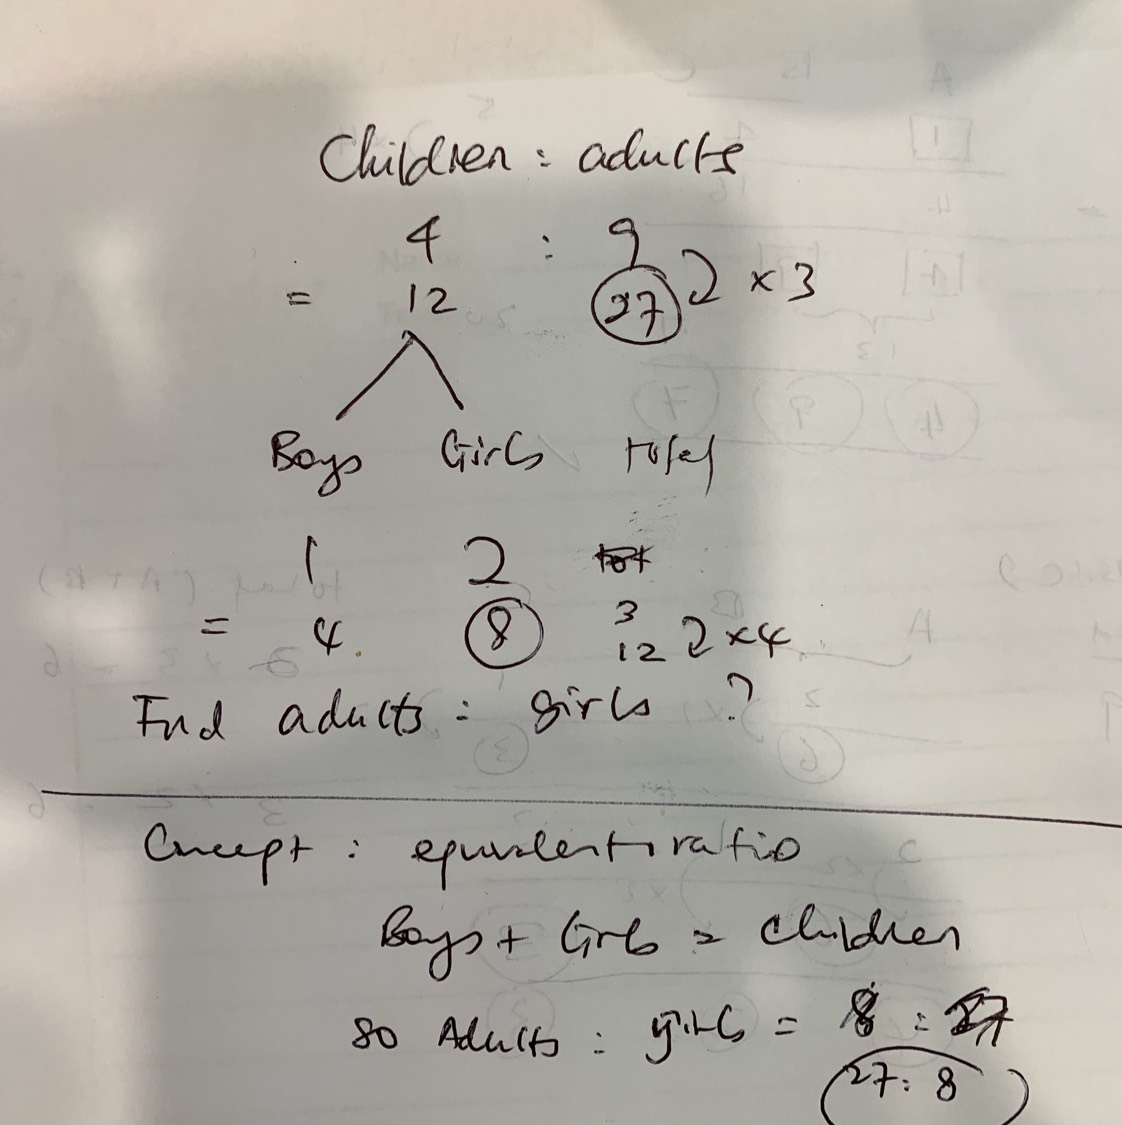 Children : adults
4 : 9
= 12 27 ×3
Boys Girls total
1 2 tot
3
= 4 8 12 ×4
Find adults : girls ?
Concept : equivalent ratio
Boys + Girls = children
so Adults : girls = 8 : 27
27 : 8